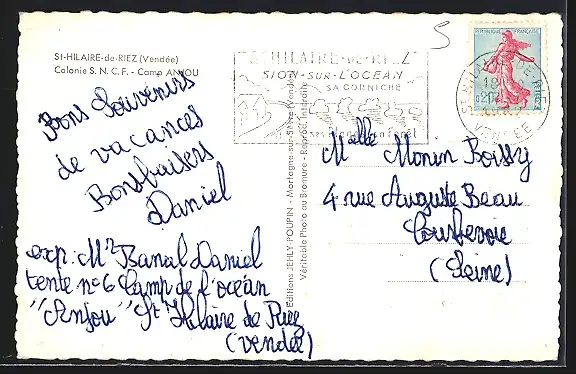 St-HILAIRE-de-RIEZ (Vendée)
Colonie S. N. C. F. - Camp ANJOU
Bons Souvenirs
de vacances
Bons baisers
Daniel
exp: Mr Banal Daniel
tente n°6 Camp de l'océan
"Anjou" St Hilaire de Riez
(Vendée)
Editions JEHLY-POUPIN - Mortagne-sur-Sèvre (Vendée)
Véritable Photo au Bromure - Reprod. Interdite
ST HILAIRE-DE-RIEZ
SION-SUR-L'OCEAN
SA CORNICHE
forêt
5
REPUBLIQUE FRANÇAISE
0,20
POSTES
ST HILAIRE-DE-RIEZ
18
VENDEE
Melle Monin Boissy
4 rue Auguste Beau
Courbevoie
(Seine)